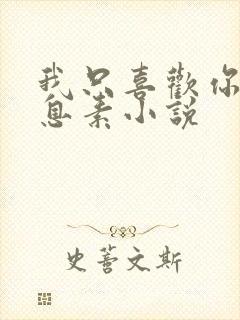 我只喜歡你
息素小說
史蒼文斯